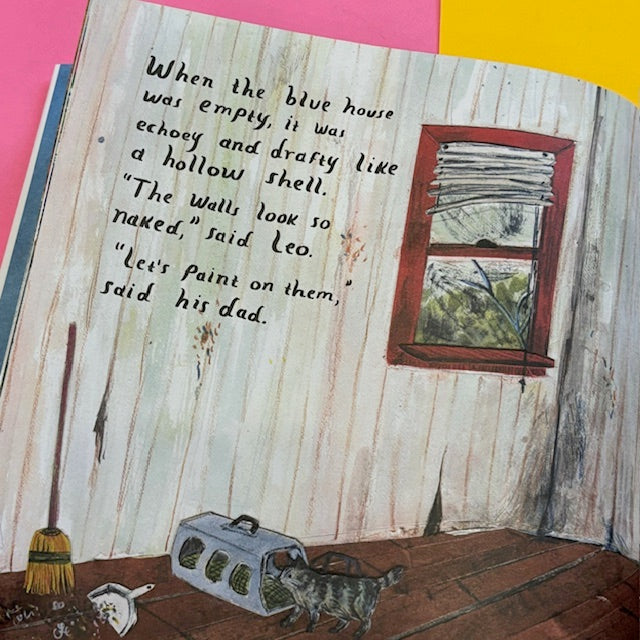 When the blue house
was empty, it was
echoey and drafty like
a hollow shell.
"The walls look so
naked," said Leo.
"Let's paint on them,"
said his dad.